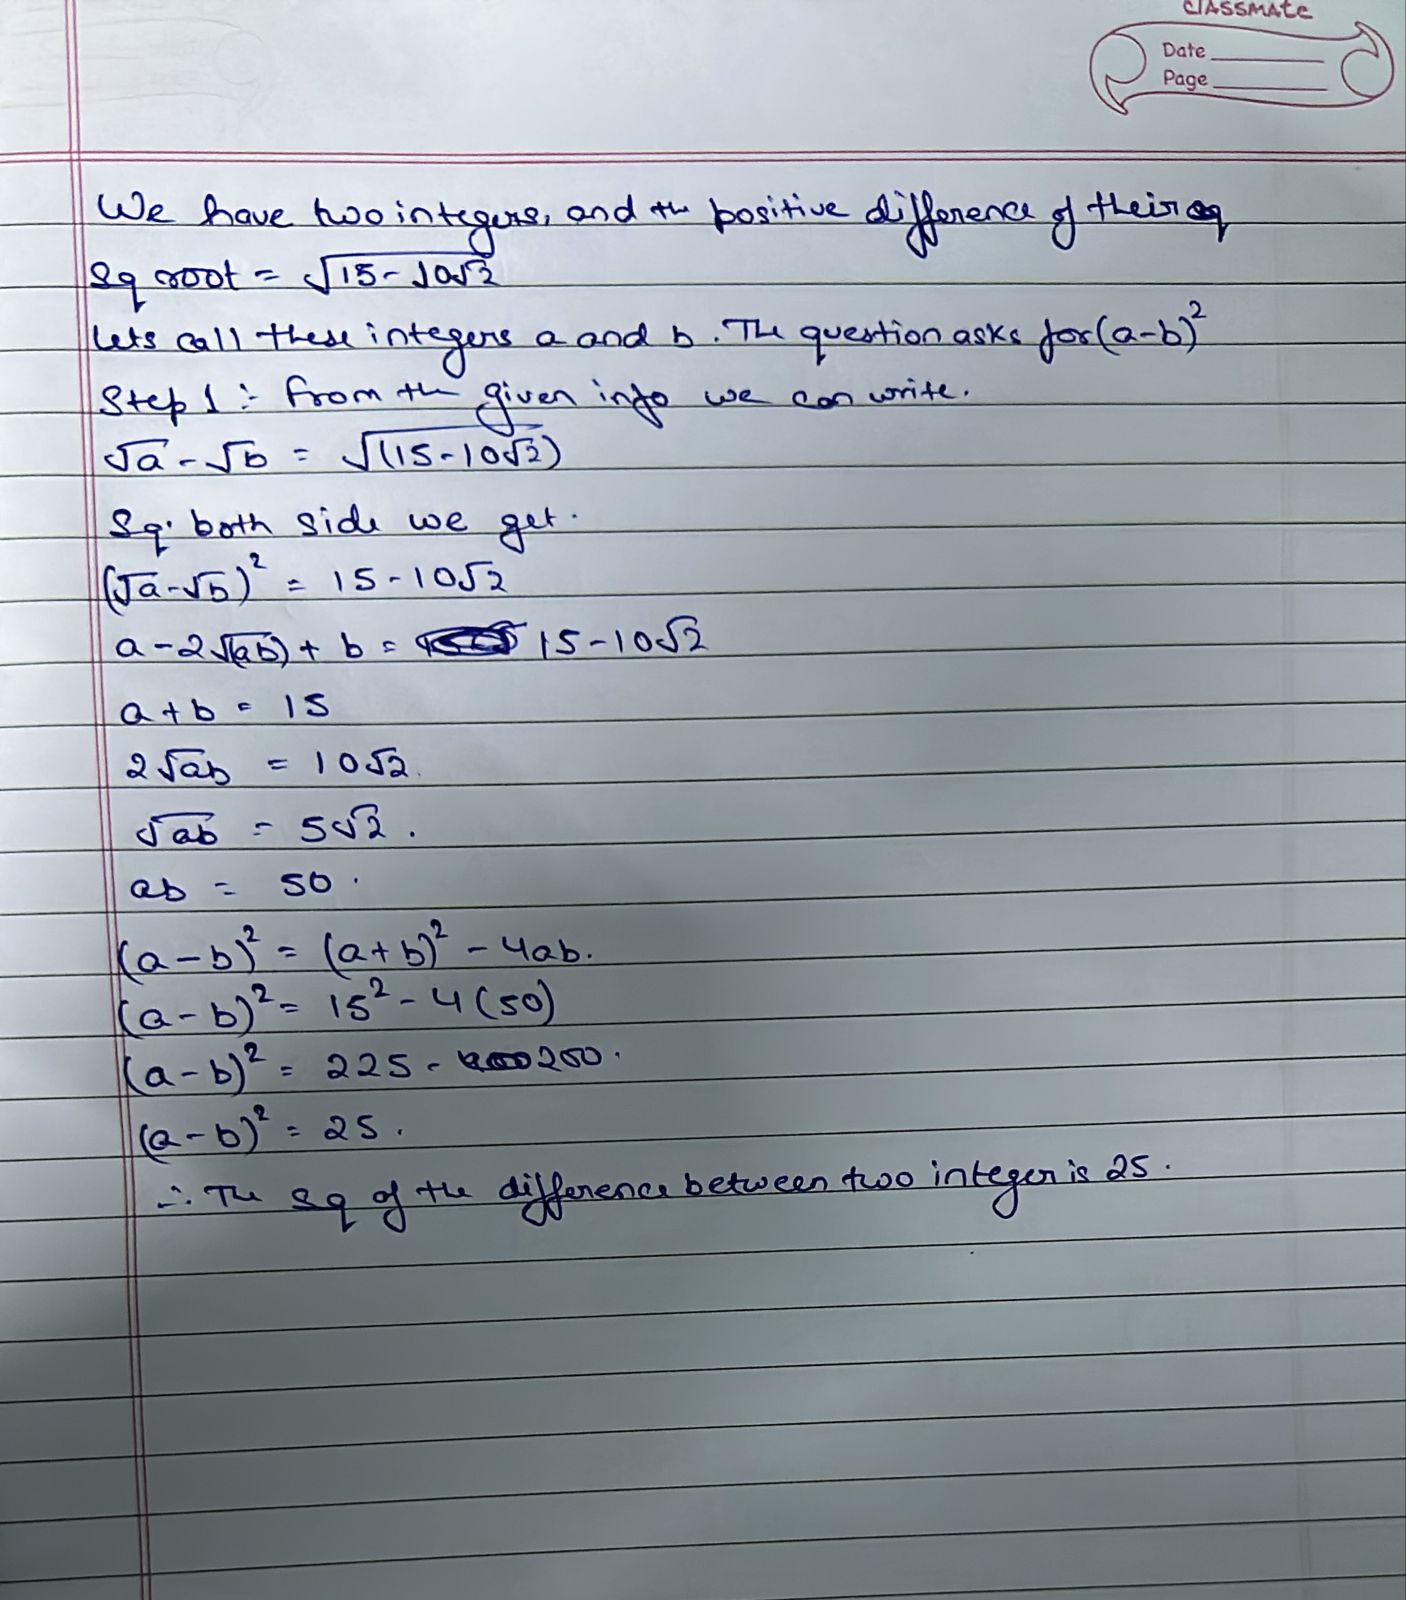 classmate
Date
Page
We have two integers, and the positive difference of their
sq root = √15-10√2
Lets call these integers a and b. The question asks for (a-b)²
Step 1 :- from the given info we can write.
√a - √b = √(15-10√2)
Sq. both side we get.
(√a-√b)² = 15-10√2
a-2√(ab) + b = 15-10√2
a+b = 15
2√ab = 10√2.
√ab = 5√2.
ab = 50.
(a-b)² = (a+b)² - 4ab.
(a-b)² = 15² - 4(50)
(a-b)² = 225 - 200.
(a-b)² = 25.
∴ The sq of the difference between two integer is 25.